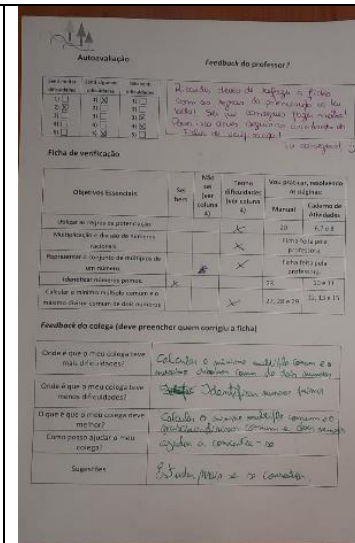 Autoavaliação
Feedback do professor?
Senti muitas dificuldades
Senti algumas dificuldades
Não senti dificuldades
1) 1) 1)
2) 2) 2)
3) 3) 3)
4) 4) 4)
5) 5) 5)
Ricardo, deves de refazer a ficha
com as regras da potenciação ao teu
lado! Sei que consegues fazer melhor!
Tu consegues!
Ficha de verificação
Objetivos Essenciais
Sei bem
Não sei (ver coluna 4)
Tenho dificuldades (ver coluna 4)
Vou praticar, resolvendo as páginas:
Manual
Caderno de Atividades
Utilizar as regras da potenciação X 20 6,7 e 8
Multiplicação e divisão de números racionais X Ficha feita pela professora
Representar o conjunto de múltiplos de um número. X Ficha feita pela professora.
Identificar números primos. X 23 10 e 11
Calcular o mínimo múltiplo comum e o máximo divisor comum de dois números X 27, 28 e 29
Feedback do colega (deve preencher quem corrigiu a ficha)
Onde é que o meu colega teve mais dificuldades?
Calcular o mínimo múltiplo comum e o
máximo divisor comum de dois números
Onde é que o meu colega teve menos dificuldades?
Identificar números primos
O que é que o meu colega deve melhor?
Calcular o mínimo múltiplo comum e o
comum e dois
Como posso ajudar o meu colega?
ajudar a concentrar-se
Sugestões
Estudar mais e se concentrar